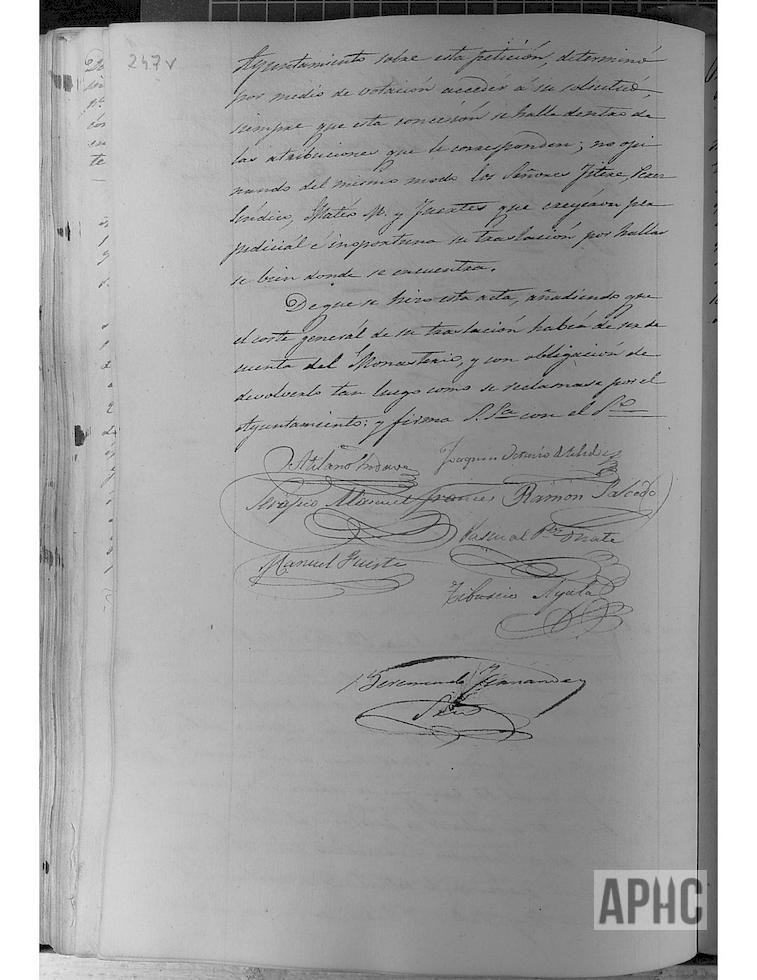 247v
Ayuntamiento sobre esta petición, determinó
por medio de votación acceder á su solicitud,
siempre que esta concesión se halle dentro de
las atribuciones que le corresponden; no opi
nando del mismo modo los Señores Jefere,
Síndico, Matéo M. y Fuertes que creyeron per
judiciál é inoportuna su traslación por hallar
se bien donde se encuentra.
De que se hizo esta acta, añadiendo que
el coste generál de su traslación habrá de ser de
cuenta del Monasterio, y con obligación de
devolverlo tan luego como se reclamase por el
Ayuntamiento: y firma S. Sa con el Srio
Atilano Joaquin
Serapio Manuel Frances Ramon Salcedo
Pascual Oñate
Manuel Fuerte
Tiburcio Ayala
Veremundo Fernandez
Srio
APHC